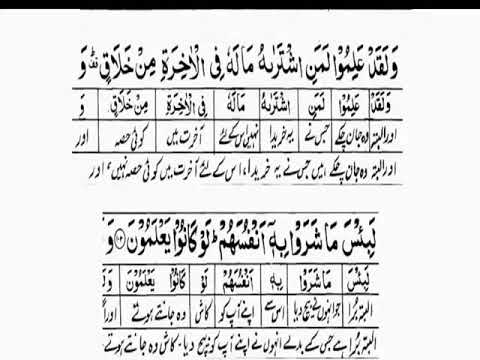 وَلَقَدْ عَلِمُوْا لَمَنِ اشْتَرٰىهُ مَا لَهٗ فِی الْاٰخِرَةِ مِنْ خَلَاقٍ ؕ وَ
وَلَقَدْ عَلِمُوْا لَمَنِ اشْتَرٰىهُ مَا لَهٗ فِی الْاٰخِرَةِ مِنْ خَلَاقٍ وَ
اور البتہ وہ جان چکے جس نے یہ خریدا نہیں اس کے لئے آخرت میں کوئی حصہ اور
اور البتہ وہ جان چکے ہیں جس نے یہ خریدا، اس کے لئے آخرت میں کوئی حصہ نہیں، اور
لَبِئْسَ مَا شَرَوْا بِهٖۤ اَنْفُسَهُمْ ؕ لَوْ كَانُوْا یَعْلَمُوْنَ ﴿۱۰۲﴾ وَ
لَبِئْسَ مَا شَرَوْا بِهٖ اَنْفُسَهُمْ لَوْ كَانُوْا یَعْلَمُوْنَ وَلَ
البتہ برا جو انہوں نے بیچ دیا اس سے اپنے آپ کو کاش وہ جانتے ہوتے اور
البتہ برا ہے جس کے بدلے انہوں نے اپنے آپ کو بیچ دیا۔ کاش وہ جانتے ہوتے